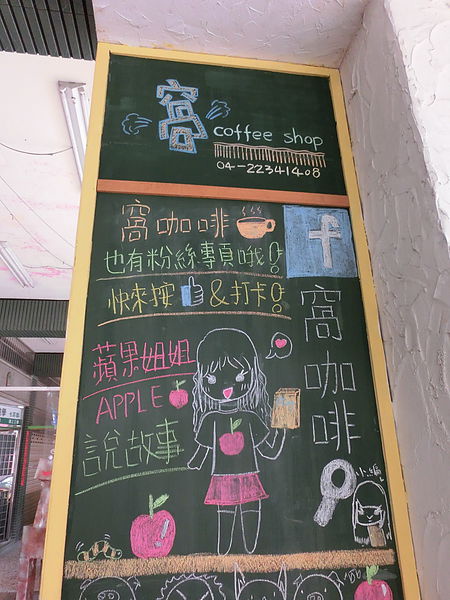 窩
coffee shop
04-22341408
窩咖啡
也有粉絲專頁哦!
f
快來按 & 打卡!
窩咖啡
蘋果姐姐
APPLE
說故事
小編